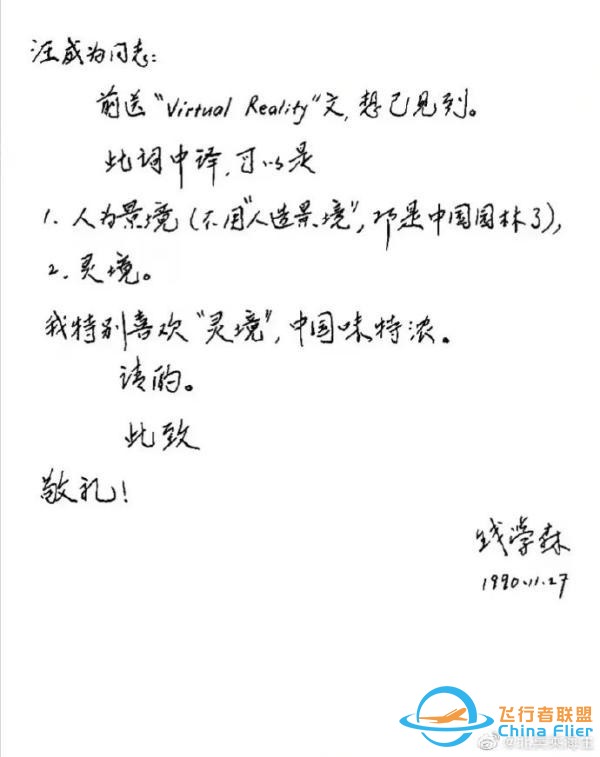 汪成为同志:
前送“Virtual Reality”文,想已见到。
此词中译,可以是
1. 人为景境(不用“人造景境”,那是中国园林了),
2. 灵境。
我特别喜欢“灵境”,中国味特浓。
请酌。
此致
敬礼!
钱学森
1990.11.27
飞行者联盟
China Flier